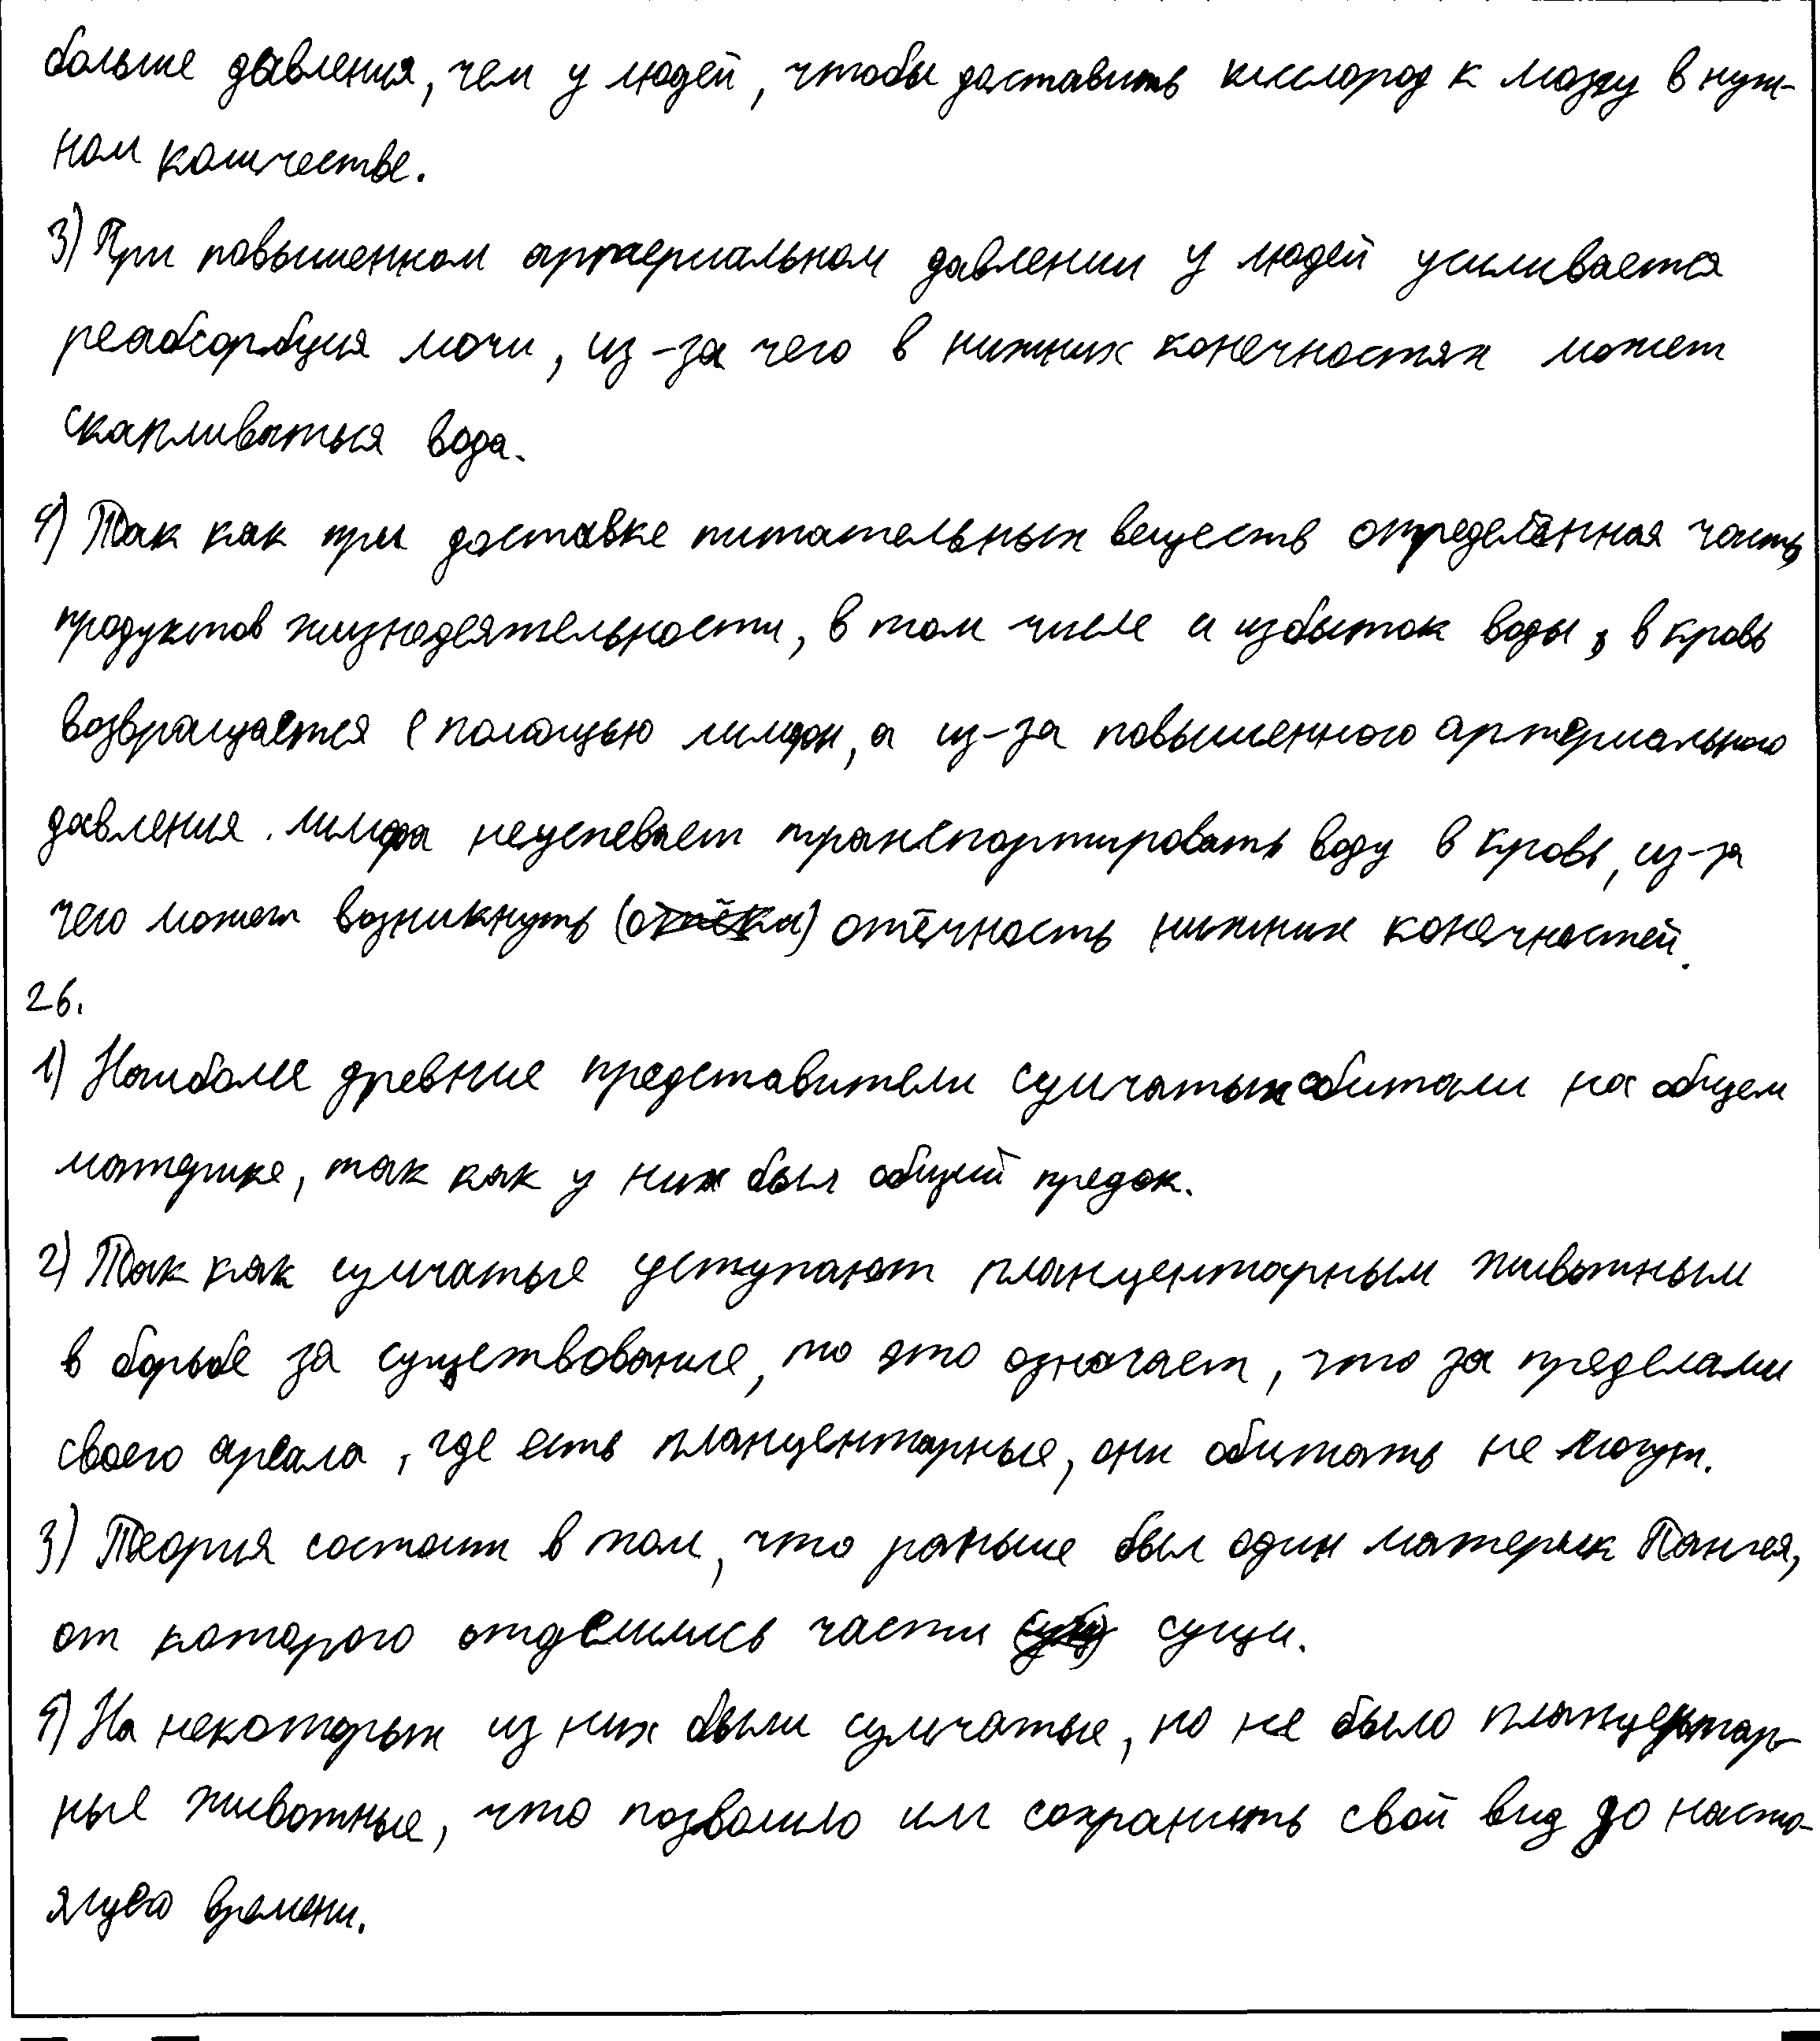 больше давления, чем у людей, чтобы доставить кислород к мозгу в нуж-
ном количестве.
3) При повышенном артериальном давлении у людей усиливается
реабсорбция мочи, из-за чего в нижних конечностях может
скапливаться вода.
4) Так как при доставке питательных веществ определённая часть
продуктов жизнедеятельности, в том числе и избыток воды, в кровь
возвращается с помощью лимфы, а из-за повышенного артериального
давления лимфа неуспевает транспортировать воду в кровь, из-за
чего может возникнуть (отёки) отёчность нижних конечностей.
26.
1) Наиболее древние представители сумчатых обитали на общем
материке, так как у них был общий предок.
2) Так как сумчатые уступают планцентарным животным
в борьбе за существование, то это означает, что за пределами
своего ареала, где есть планцентарные, они обитать не могут.
3) Теория состоит в том, что раньше был один материк Пангея,
от которого отделились части суши.
4) На некоторых из них были сумчатые, но не было планцентар-
ные животные, что позволило им сохранить свой вид до насто-
ящего времени.